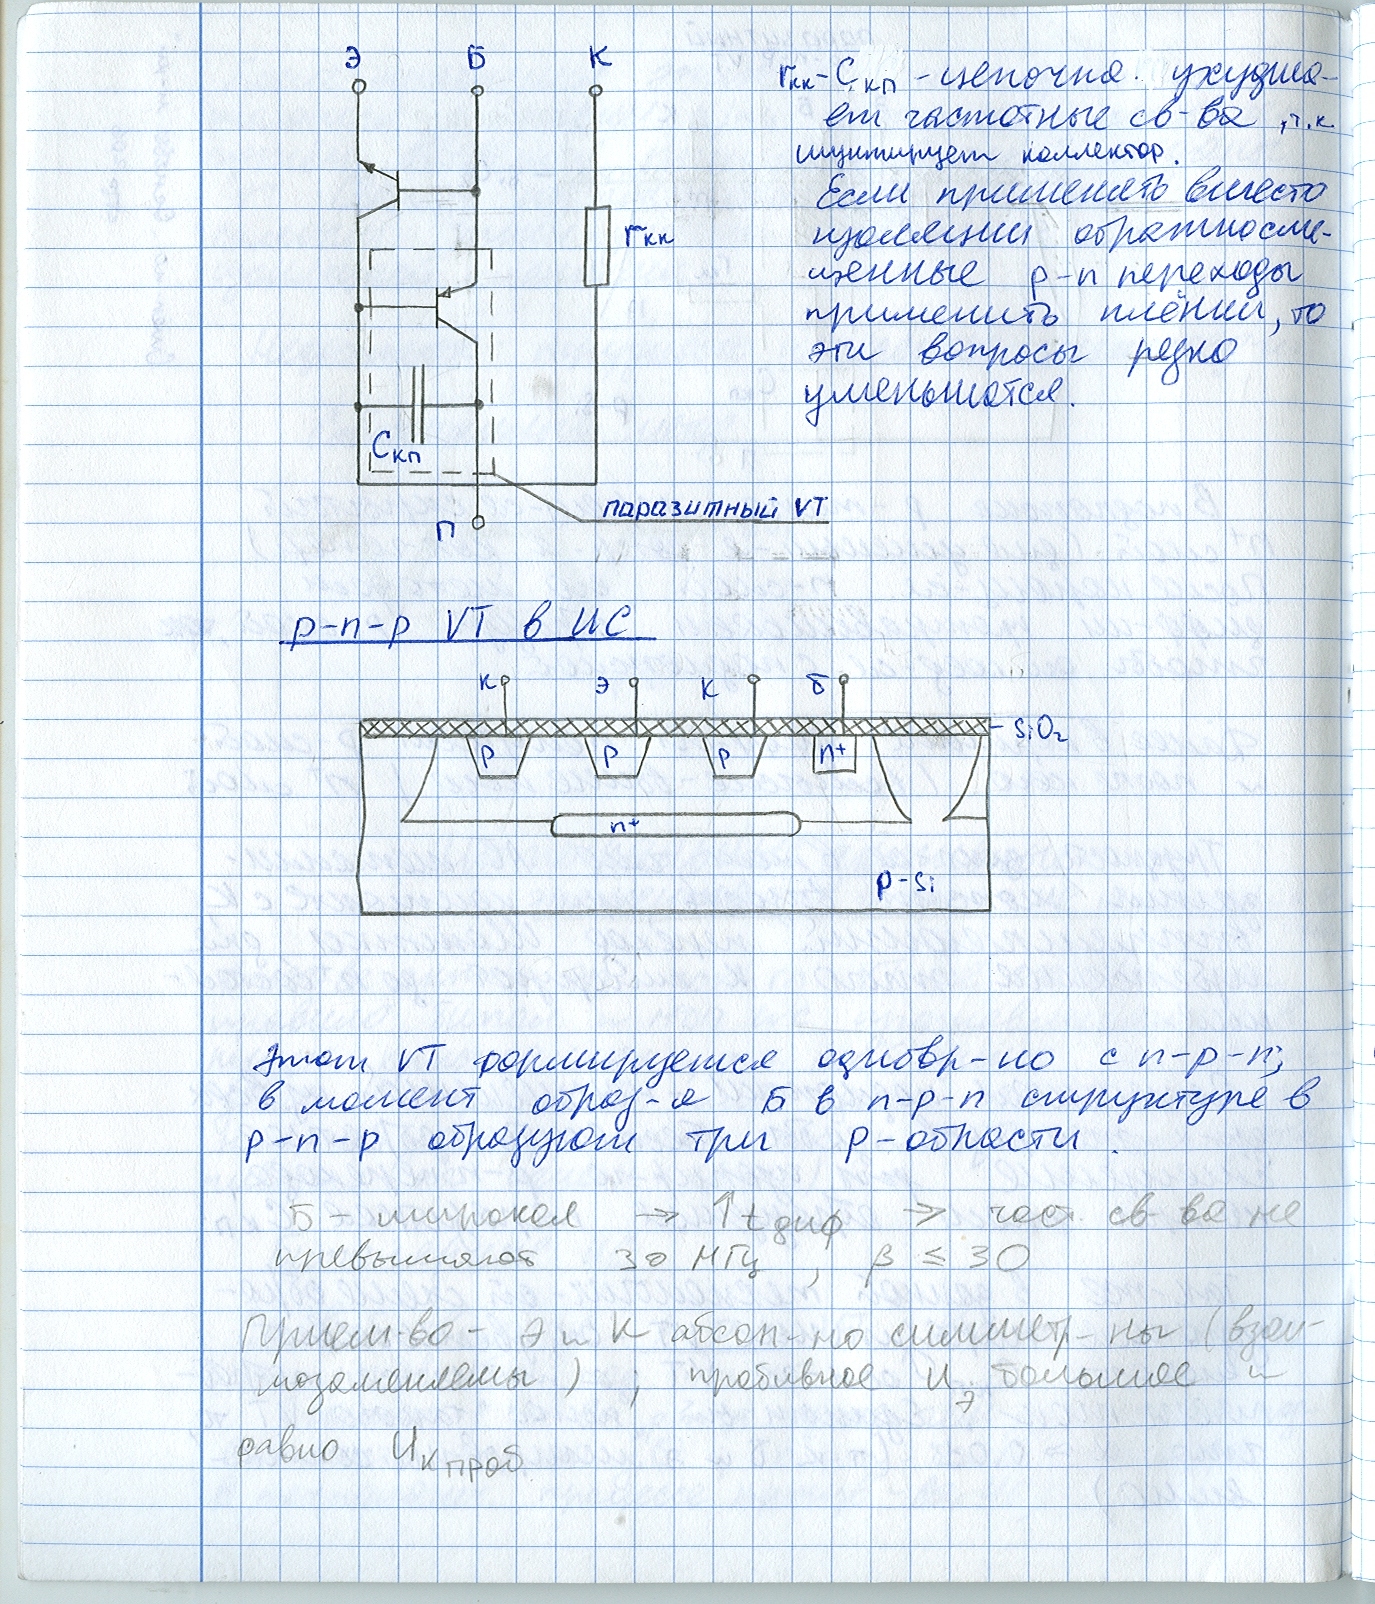 Э Б К
rкк
Cкп
П
паразитный VT
rкк-Cкп - цепочка ухудша-
ет частотные св-ва, т.к.
шунтирует коллектор.
Если применять вместо
изоляции обратносме-
щенные p-n переходы
применить плёнки, то
эти вопросы резко
уменьшатся.
p-n-p VT в ИС
К Э К Б
SiO₂
p p p n+
n+
p-Si
Этот VT формируется одновр-но с n-p-n;
в момент образ-я Б в n-p-n структуре в
p-n-p образуют три p-области.
Б - широкая → ↑tдиф → част. св-ва не
превышают 30 МГц, β ≤ 30
Преим-во - Э и К абсол-но симметр-ны (взаи-
мозаменяемы); пробивное Uэ большое и
равно Uк проб